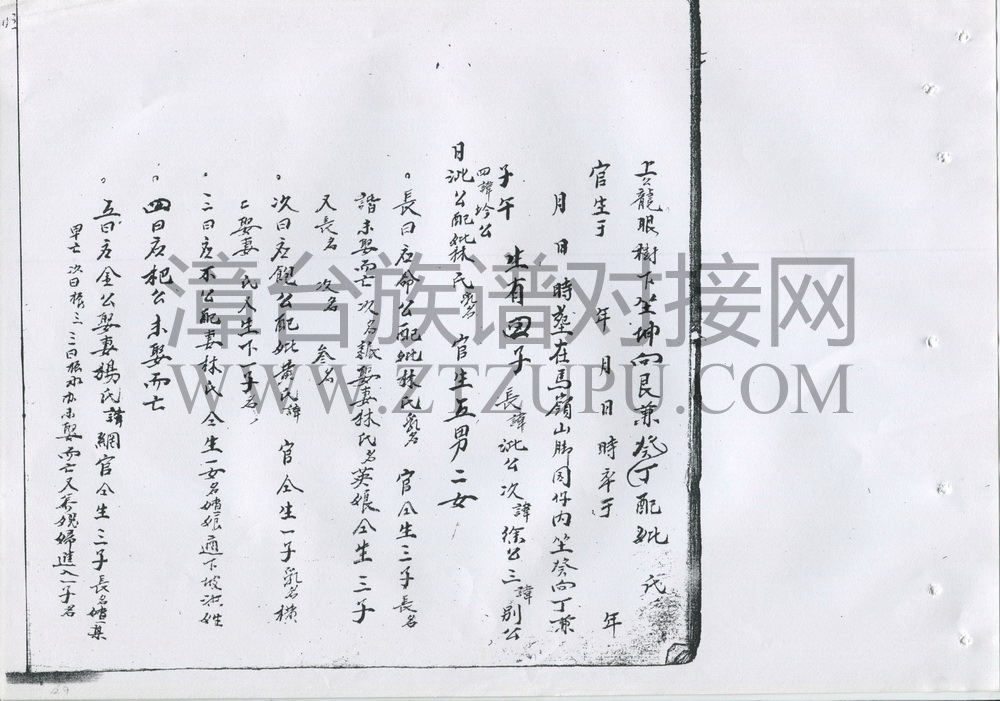 上龍眼樹下坐坤向艮兼癸丁配妣 氏
官生于 年 月 日 時卒于 年
月 日 時塟在馬嶺山脚園仔内坐癸向丁兼
子午 生有四子 長諱 公次諱徐公三諱别公
四諱坽公
日 公配妣林氏乳名 官生五男二女
長曰 命公配妣林氏乳名 官仝生三子長名
諧未娶而亡次名 娶妻林氏名英娘仝生三子
又長名 次名 叁名
次曰 飽公配妣黄氏諱 官仝生一子乳名横
亡娶妻 氏又生下 子名
三曰 不公配妻林氏仝生一女名 娘適下坡洪姓
四曰 杷公未娶而亡
五曰 金公娶妻楊氏諱網官仝生三子長名
早亡次曰 三三曰 水亦未娶而亡又 媳婦進入一子名
漳台族谱对接网
WWW.ZTZUPU.COM